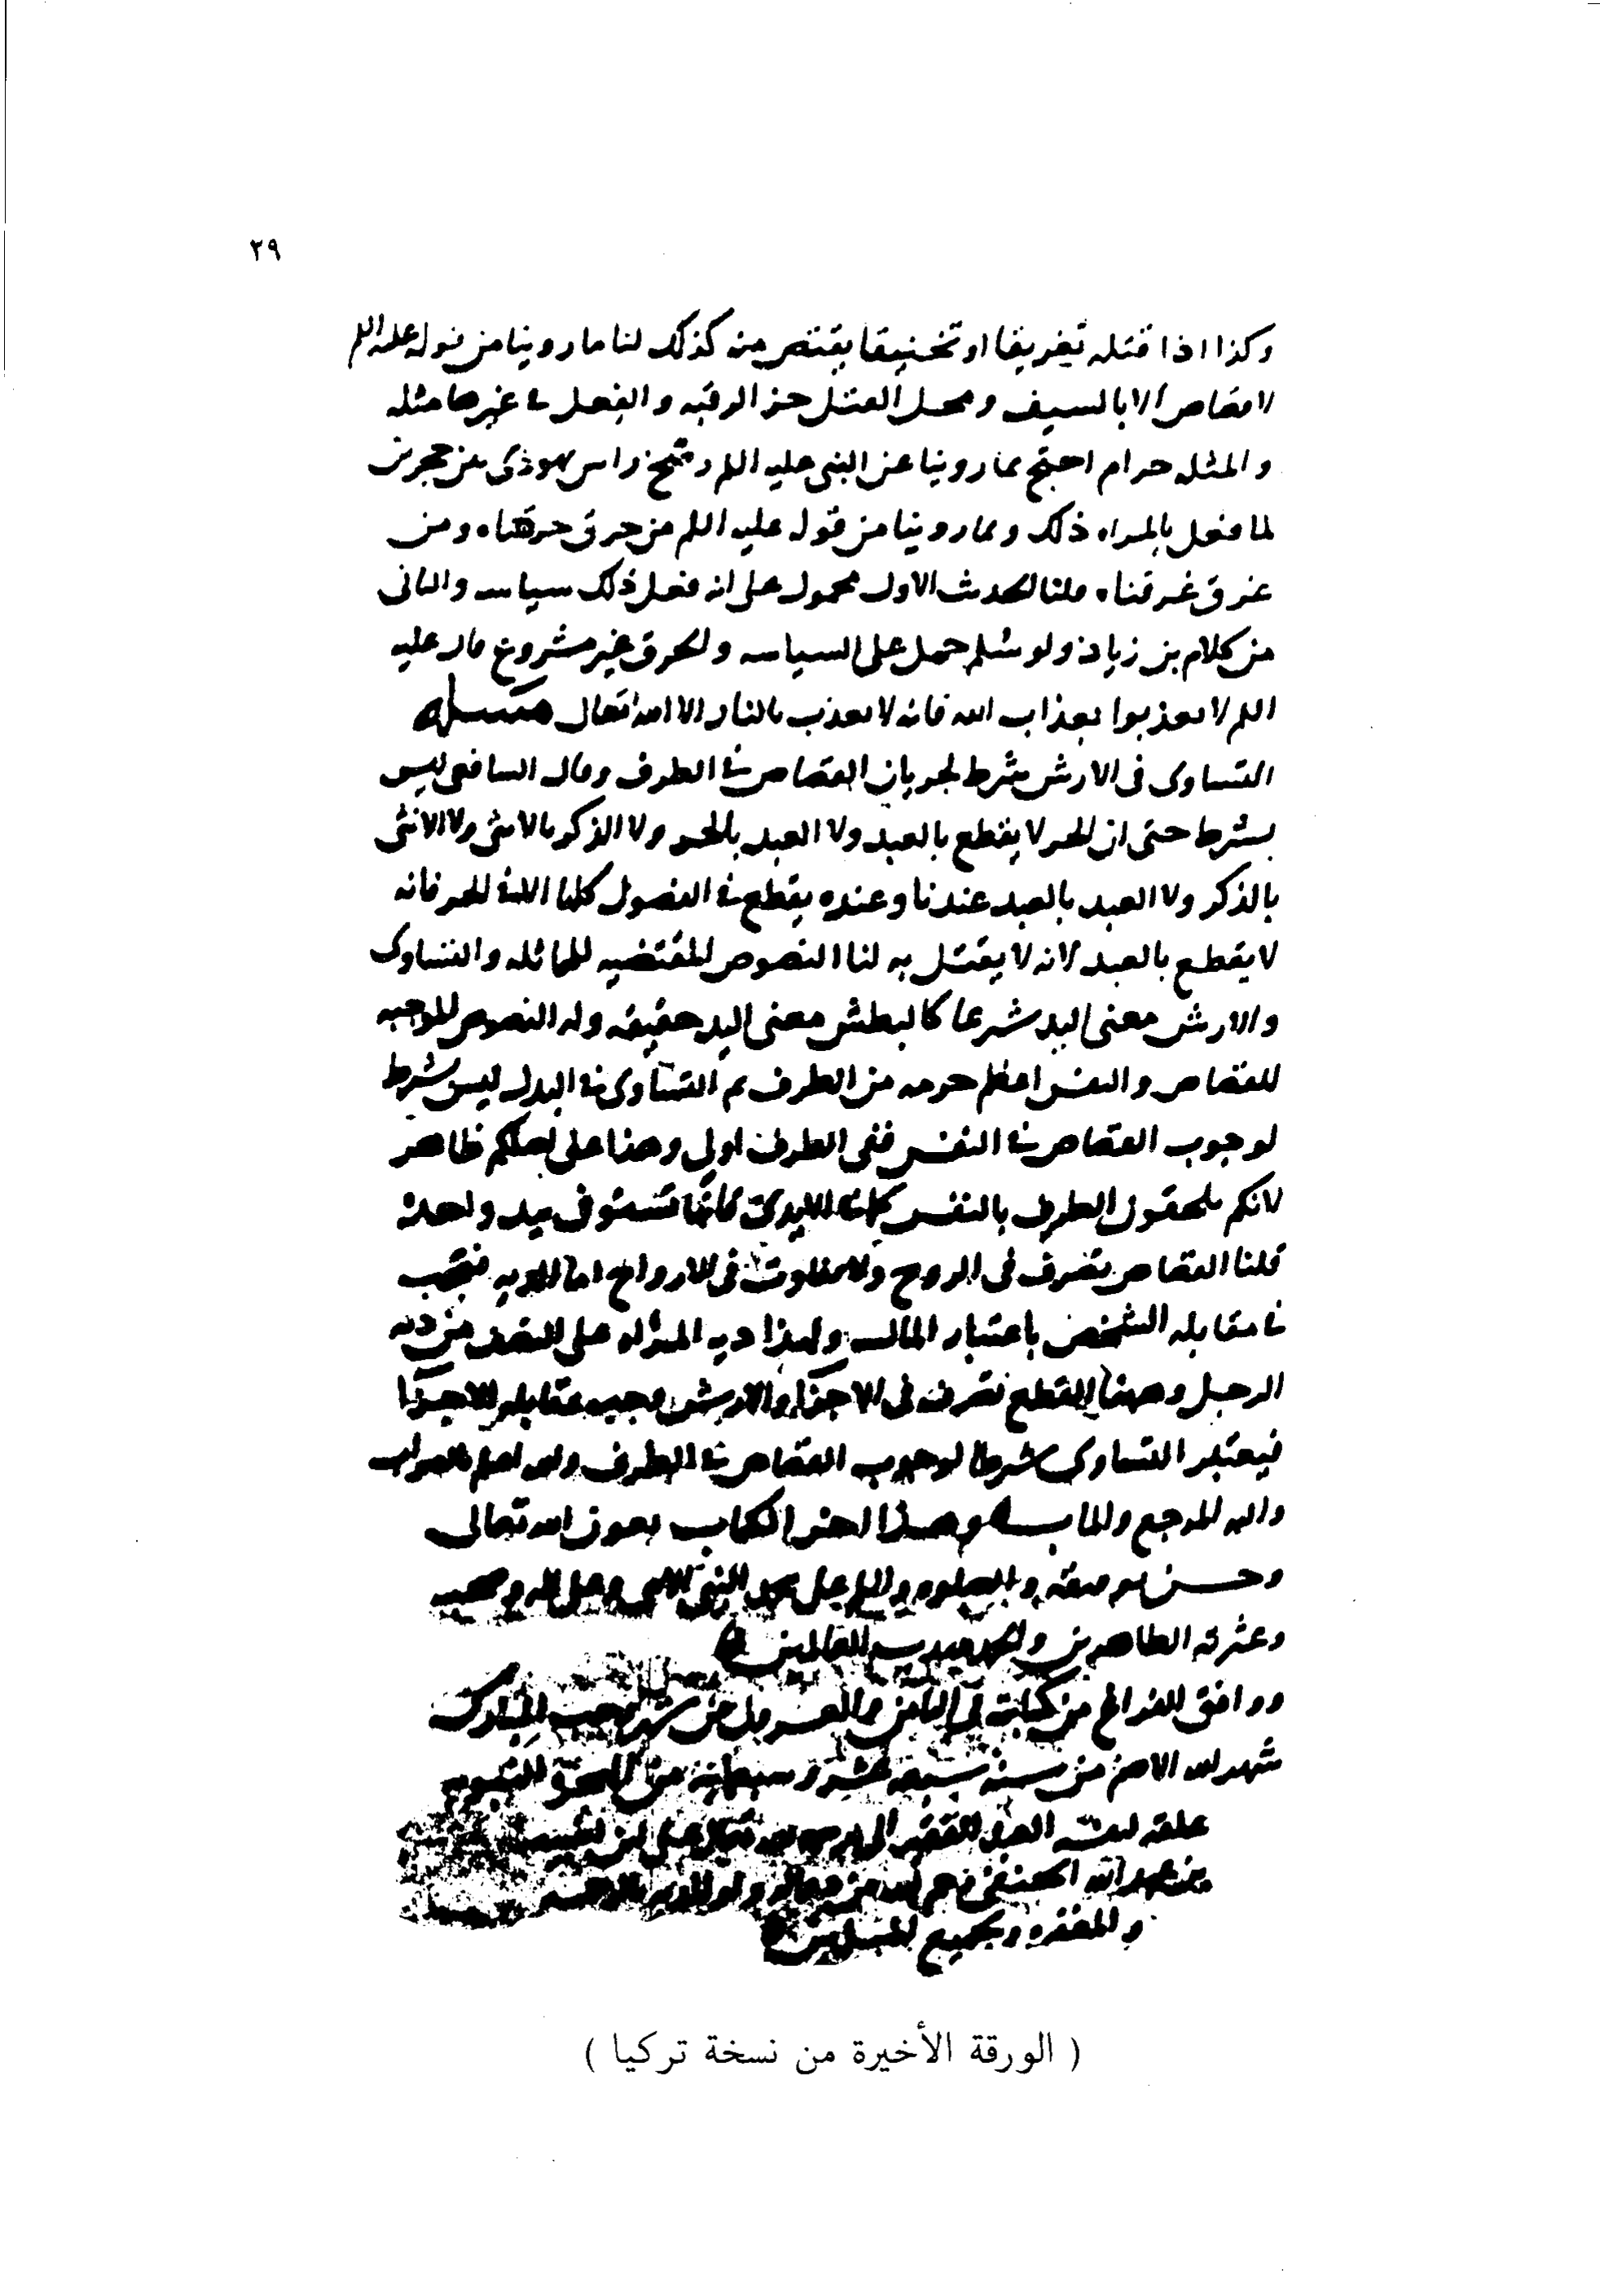 ٢٩
وكذا اذا قتله تغريقا او تخنيقا يقتص منه كذلك لنا ما روينا من قوله عليه اللم
لا قصاص الا بالسيف ومحل القتل حز الرقبه والفعل في غيرها مثله
والمثله حرام احتج بما روينا عن النبى عليه اللم رضخ راس يهودى بين حجرين
لما فعل بالمراه ذلك وبما روينا من قوله عليه اللم من حرق حرقناه ومن
غرق غرقناه قلنا الحديث الاول محمول على انه فعل ذلك سياسه والثانى
من كلام بن زياد ولو سلم حمل على السياسه والحرق غير مشروع قال عليه
اللم لا تعذبوا بعذاب الله فانه لا يعذب بالنار الا الله تعالى مسله
التساوى فى الارش شرط لجريان القصاص في الطرف وقال الشافعى ليس
بشرط حتى ان الحر لا يقطع بالعبد ولا العبد بالحر ولا الذكر بالانثى ولا الانثى
بالذكر ولا العبد بالعبد عندنا وعنده يقطع في الفصول كلها الا في الحر فانه
لا يقطع بالعبد لانه لا يقتل به لنا النصوص المقتضيه للمماثله والتساوى
والارش معنى اليد شرعا كالبطش معنى اليد حقيقه وله النصوص الموجبه
للقصاص والنفس اعظم حرمه من الطرف ثم التساوى في البدل ليس بشرط
لوجوب القصاص في النفس ففى الطرف اولى وهذا على اصلكم ظاهر
لانكم تلحقون الطرف بالنفس الايدى بيد واحدة
قلنا القصاص تصرف فى الروح ولا تفاوت فى الارواح اما الديه فتجب
في مقابله الشخص باعتبار الماليه ولهذا ديه المراه على النصف من ديه
الرجل وههنا القطع تصرف فى الاجزا والارش وجب بمقابله الاجزا
فيعتبر التساوى شرطا لوجوب القصاص في الطرف والله اعلم بالصواب
واليه المرجع والماب وهذا اخر الكتاب بعون الله تعالى
وحسن توفيقه والصلوه واللم على محمد النبى الامى وعلى اله وصحبه
وعترته الطاهرين والحمد لله رب العالمين
ووافق الفراغ من كتابته فى الثامن والعشرين من شهر رجب المبارك
شهر الله الاصم من سنه سبعه عشر وسبعمايه من الهجرة النبويه
علقه لنفسه العبد الفقير الى تعالى على بن
بن عبد الله الحنفى ولوالديه
والمغفره ولجميع المسلمين
( الورقة الأخيرة من نسخة تركيا )